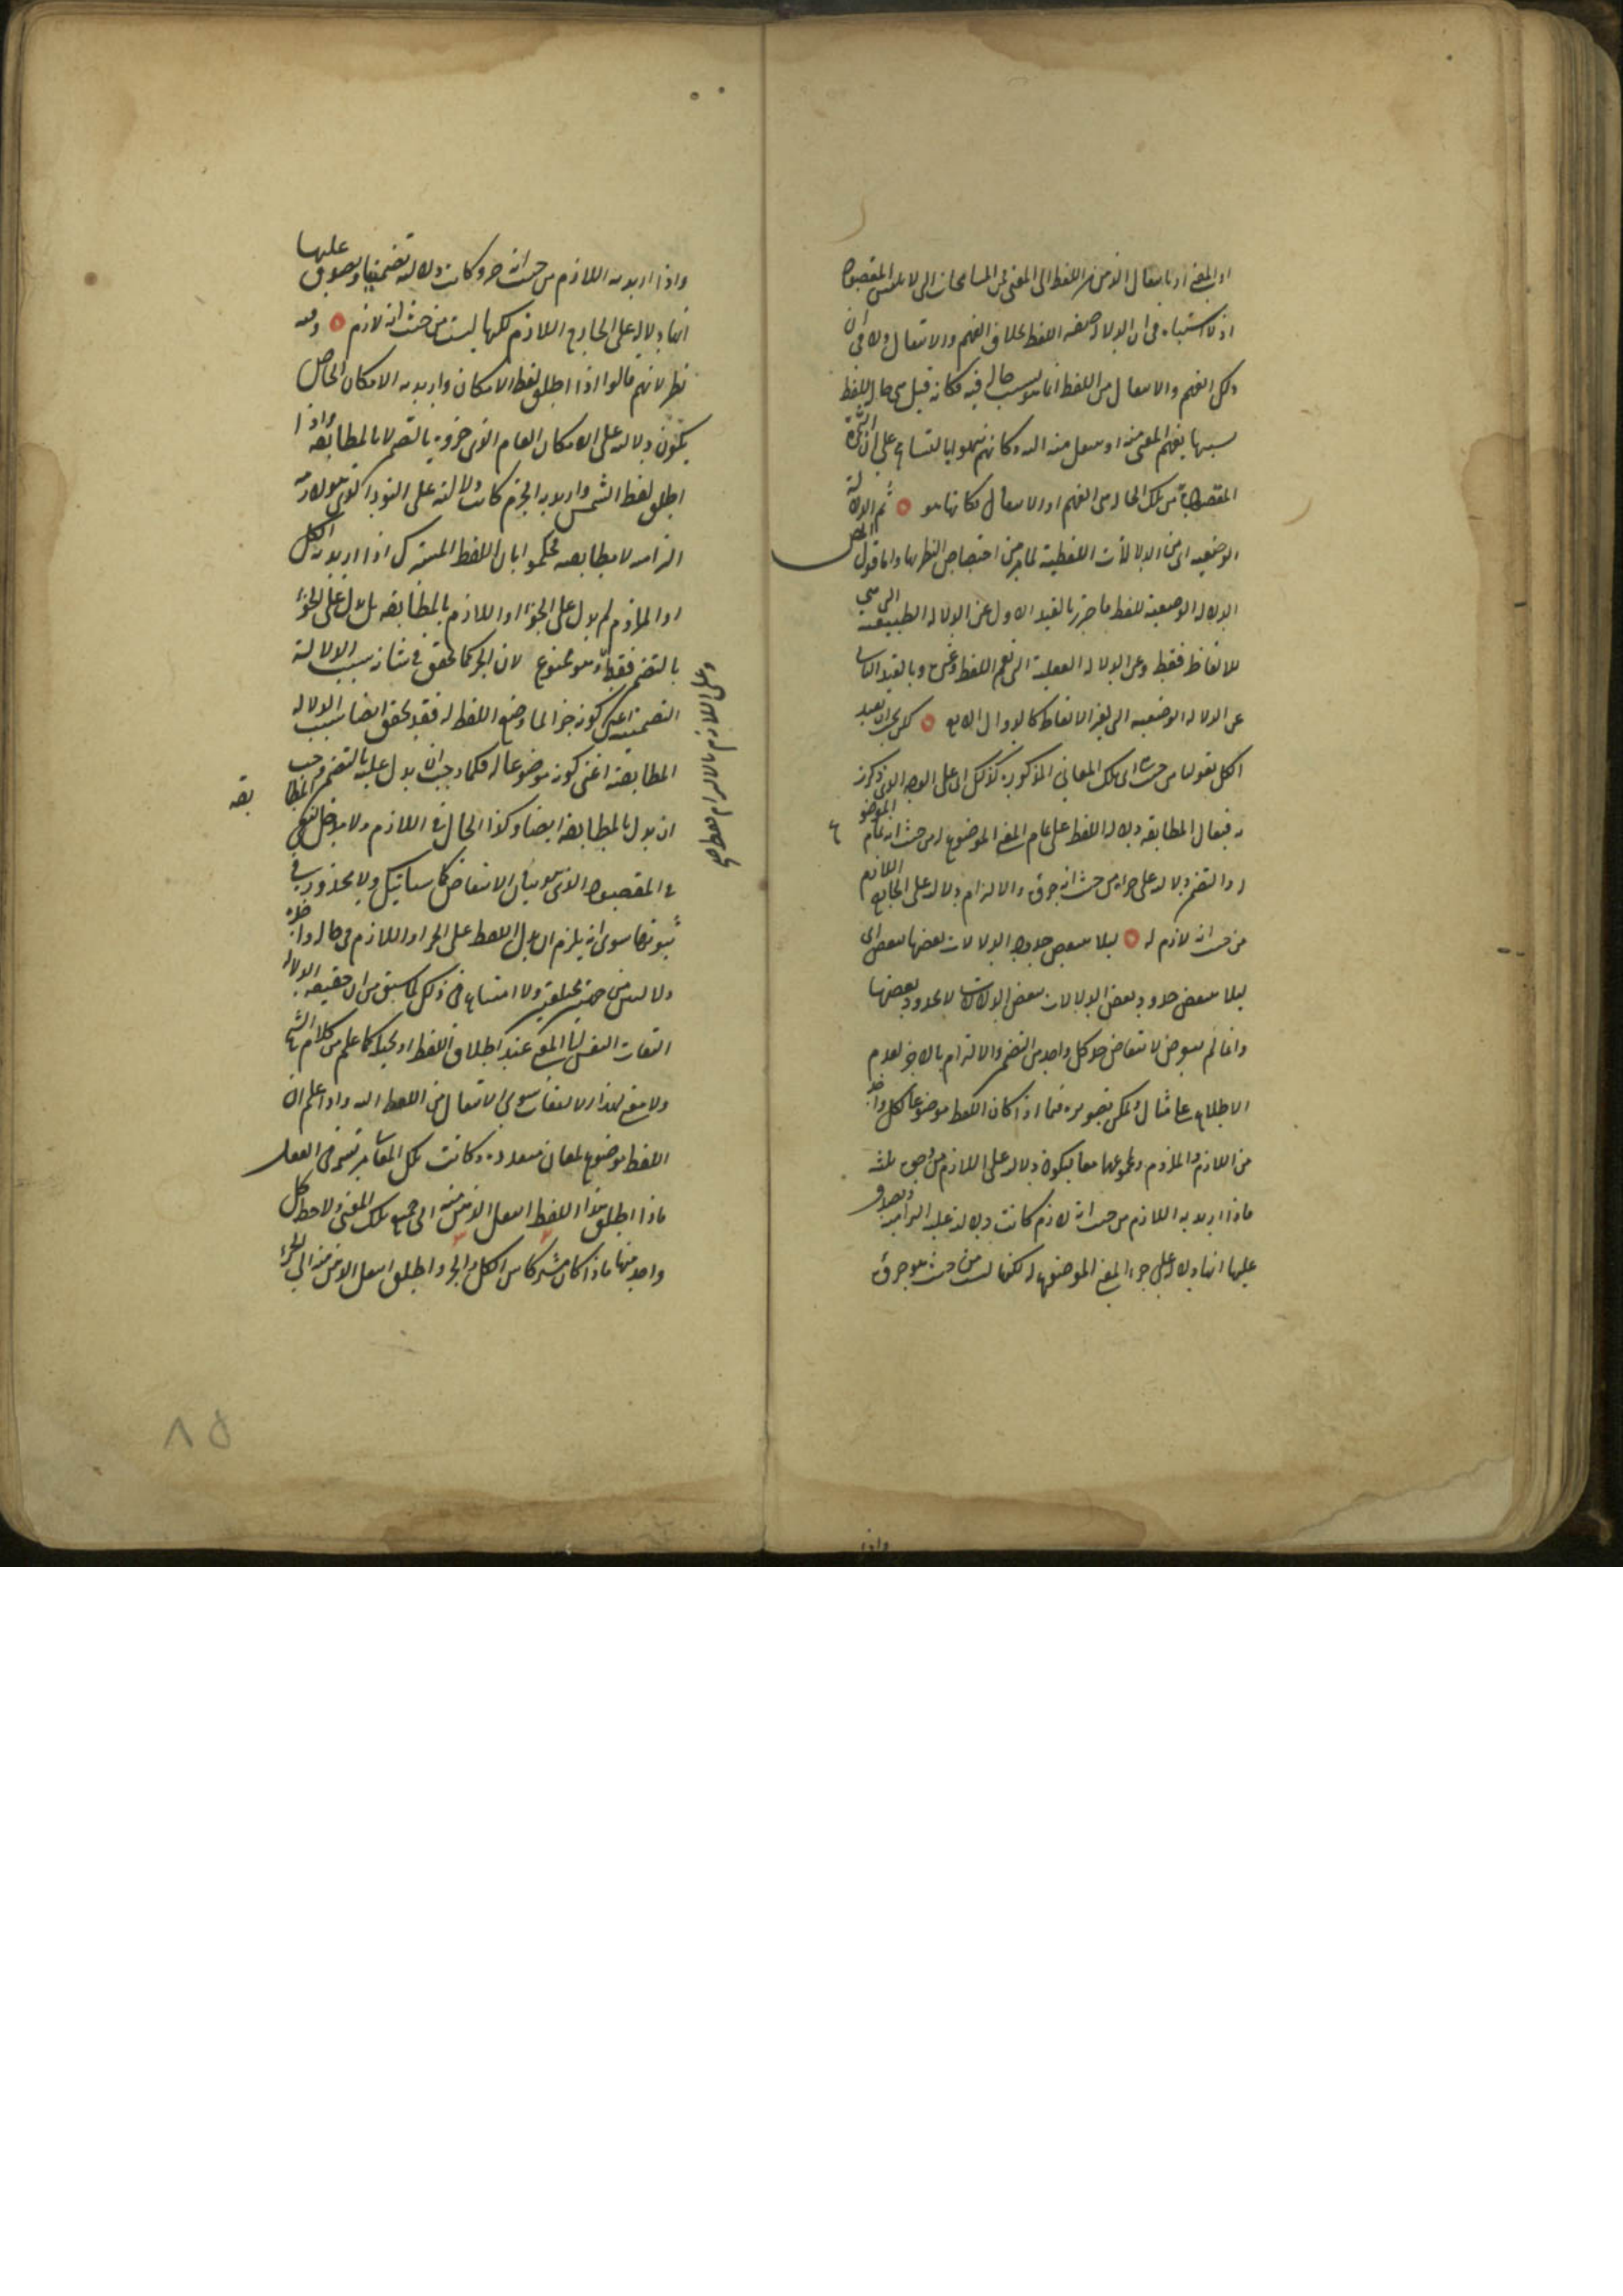 او المعنى او بانتقال الذهن من اللفظ الى المعنى من المسامحات التي لا يلتبس المقصود
اذ لا اشتباه في ان الدلالة صفة اللفظ بخلاف الفهم والانتقال ولا في ان
ذلك الفهم والانتقال من اللفظ انما هو بسبب حالة فيه فكانه قيل هي حال اللفظ
بسببها يفهم المعنى منه او ينتقل منه اليه وكانهم نبهوا بالتسامح على ان الثمرة
المقصودة من تلك الحال هي الفهم او الانتقال فكانها هو ثم الدلالة
الوضعية اي من الدلالات اللفظية لما مر من اختصاص النظر بها واما قول المص
الدلالة الوضعية للفظ فاحترز بالقيد الاول عن الدلالة الطبيعية التي هي
للالفاظ فقط وعن الدلالة العقلية التي تعم اللفظ وغيره وبالقيد الثاني
عن الدلالة الوضعية التي لغير الالفاظ كالدوال الاربع لكن يجب ان يقيد
الكل بقولنا من حيث اي تلك المعاني المذكورة كذلك اي على الوجه الذي ذكر
فيقال المطابقة دلالة اللفظ على تمام المعنى الموضوع له من حيث انه تمام الموضوع
له والتضمن دلالته على جزئه من حيث انه جزؤه والالتزام دلالته على الخارج اللازم
من حيث انه لازم له ليلا ينتقض حدود الدلالات بعضها ببعض اي
ليلا ينتقض حدود بعض الدلالات ببعض الدلالات لا بحدود بعضها
وانما لم يتعرض لانتقاض حد كل واحد من التضمن والالتزام بالاخر لعدم
الاطلاع على مثال ويمكن تصويره فيما اذا كان اللفظ موضوعا لكل واحد
من اللازم والملزوم ولمجموعهما معا فيكون دلالته على اللازم من وجوه ثلثة
فاذا اريد به اللازم من حيث انه لازم كانت دلالته عليه التزامية ويصدق
عليها انها دلالة على جزء المعنى الموضوع له لكنها ليست من حيث هو جزؤه
واذا
واذا اريد به اللازم من حيث انه جزؤه كانت دلالته تضمنية ويصدق عليها
انها دلالة على الخارج اللازم لكنها ليست من حيث انه لازم وفيه
نظر لانهم قالوا اذا اطلق لفظ الامكان واريد به الامكان الخاص
يكون دلالته على الامكان العام الذي جزؤه بالتضمن لا بالمطابقة واذا
اطلق لفظ الشمس واريد به الجرم كانت دلالته على النور الذي هو لازمه
التزامية لا مطابقة فحكموا بان اللفظ المشترك اذا اريد به الكل
او الملزوم لم يدل على الجزء او اللازم بالمطابقة بل يدل على الجزء
بالتضمن فقط وهو ممنوع لان الجزء كما تحقق في شانه سبب الدلالة
التضمنية اعني كونه جزءا لما وضع اللفظ له فقد تحقق ايضا سبب الدلالة
المطابقة اعني كونه موضوعا له فكما وجب ان يدل عليه بالتضمن وجب
ان يدل بالمطابقة ايضا وكذا الحال في اللازم
في المقصود الذي هو بيان الانتقاض كما سياتيك ولا محذور في
ثبوتها سوى انه يلزم ان يدل اللفظ على الجزء او اللازم في حالة واحدة
دلالتين من جهتين مختلفتين ولا امتناع في ذلك لما سبق من ان حقيقة الدلالة
التفات النفس الى المعنى عند اطلاق اللفظ او تخيله كما علم من كلام الشيخ
ولا معنى لهذا الالتفات سوى الانتقال من اللفظ اليه واذا علم ان
اللفظ موضوع لمعان متعددة وكانت تلك المعاني مرتسمة في العقل
فاذا اطلق هذا اللفظ انتقل الذهن منه الى جميع تلك المعاني ولاحظ كل
واحد منها فاذا كان مشتركا بين الكل والجزء واطلق انتقل الذهن منه الى الجزء
٨٥